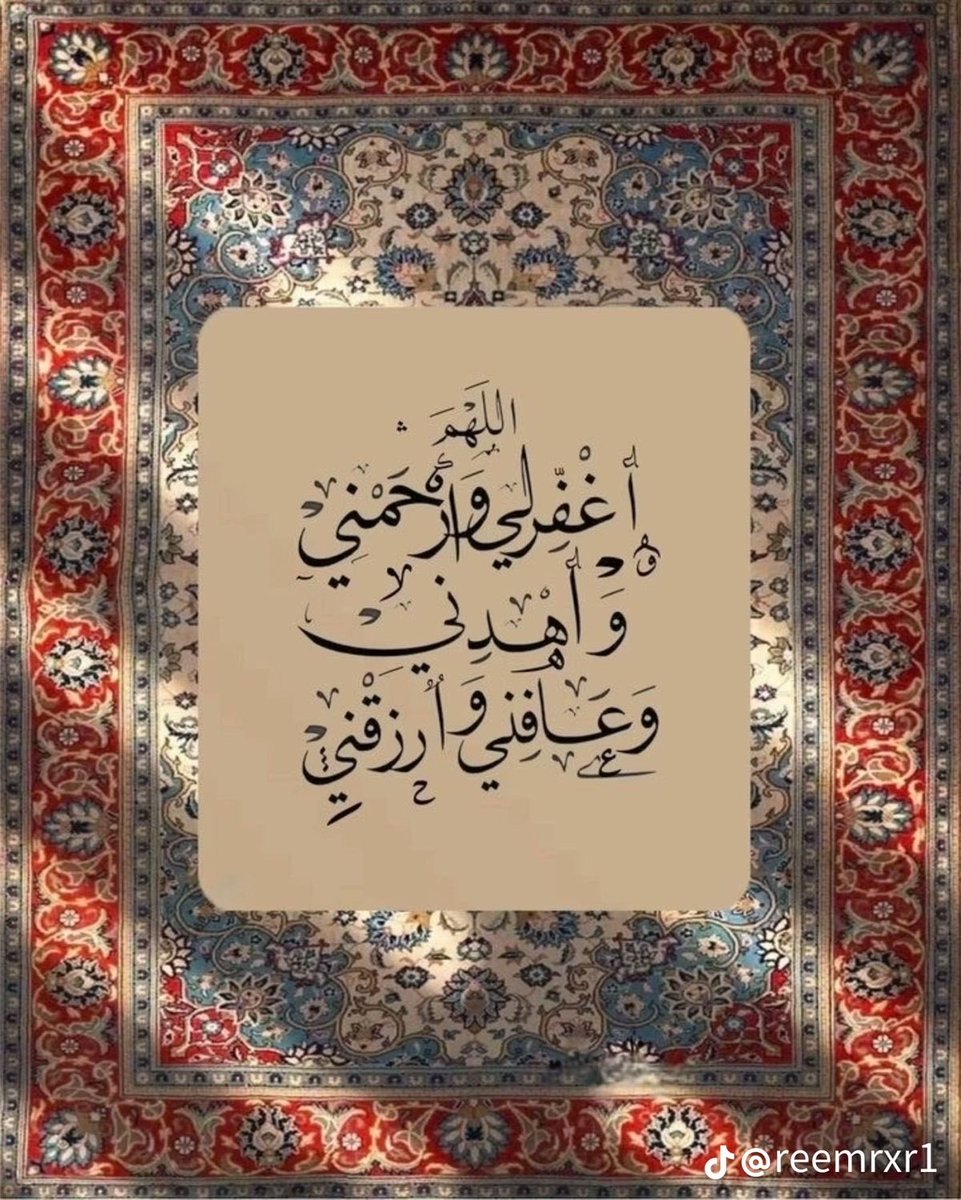 اللَّهُمَّ
أغْفِرلي وَارْحَمْنِي
وَأهْدِني
وَعَافِني وَأرزقْني
@reemrxr1